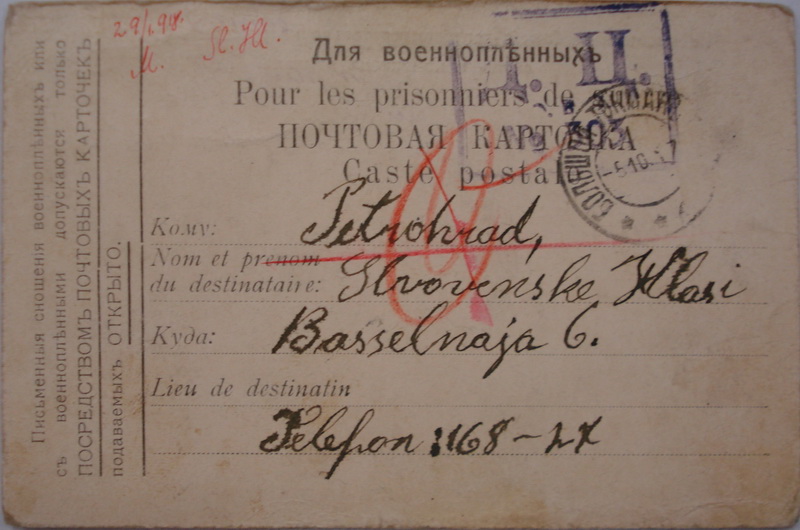 29/I.98.
M. Sl. Hl.
Для военноплѣнныхъ
Pour les prisonniers de
Г. Ц.
ПОЧТОВАЯ КАРТОЧКА
Carte postal
-5.10.17
Кому: Petrohrad,
Nom et prenom
du destinataire: Slovenske Hlasi
Куда: Basselnaja 6.
Lieu de destinatin
Telefon: 168-27
Письменныя сношенія военноплѣнныхъ или
съ военноплѣнными допускаются только
ПОСРЕДСТВОМЪ ПОЧТОВЫХЪ КАРТОЧЕКЪ
подаваемыхъ ОТКРЫТО.